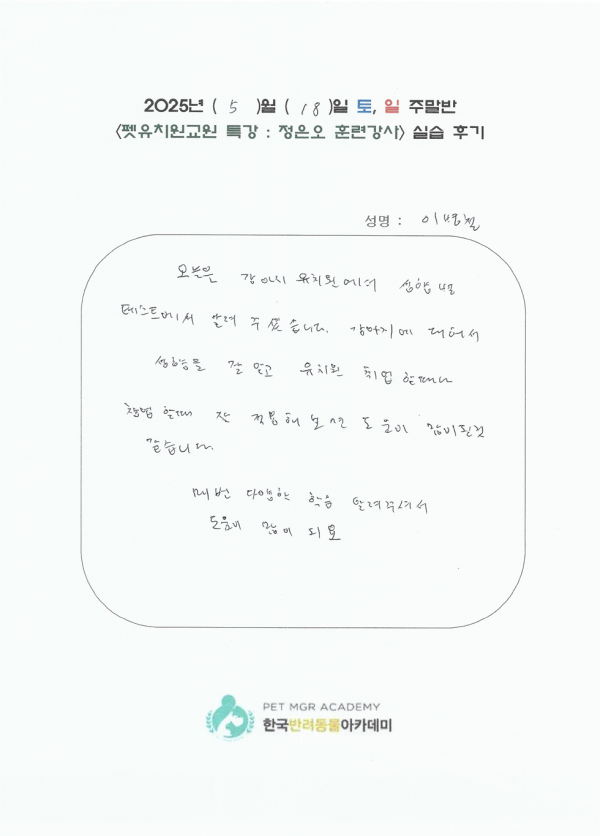 2025년 ( 5 )월 ( 18 )일 토, 일 주말반
<펫유치원교원 특강 : 정은오 훈련강사> 실습 후기
성명 : 이병철
오늘은 강아지 유치원에서 성향별
테스트에서 알려 주셨습니다. 강아지에 대해서
성향을 잘 알고 유치원 취업 할때나
창업 할때 잘 적용해 보면 도움이 많이될것
같습니다.
매번 다양한 학습 알려주셔서
도움이 많이 되요
PET MGR ACADEMY
한국반려동물아카데미